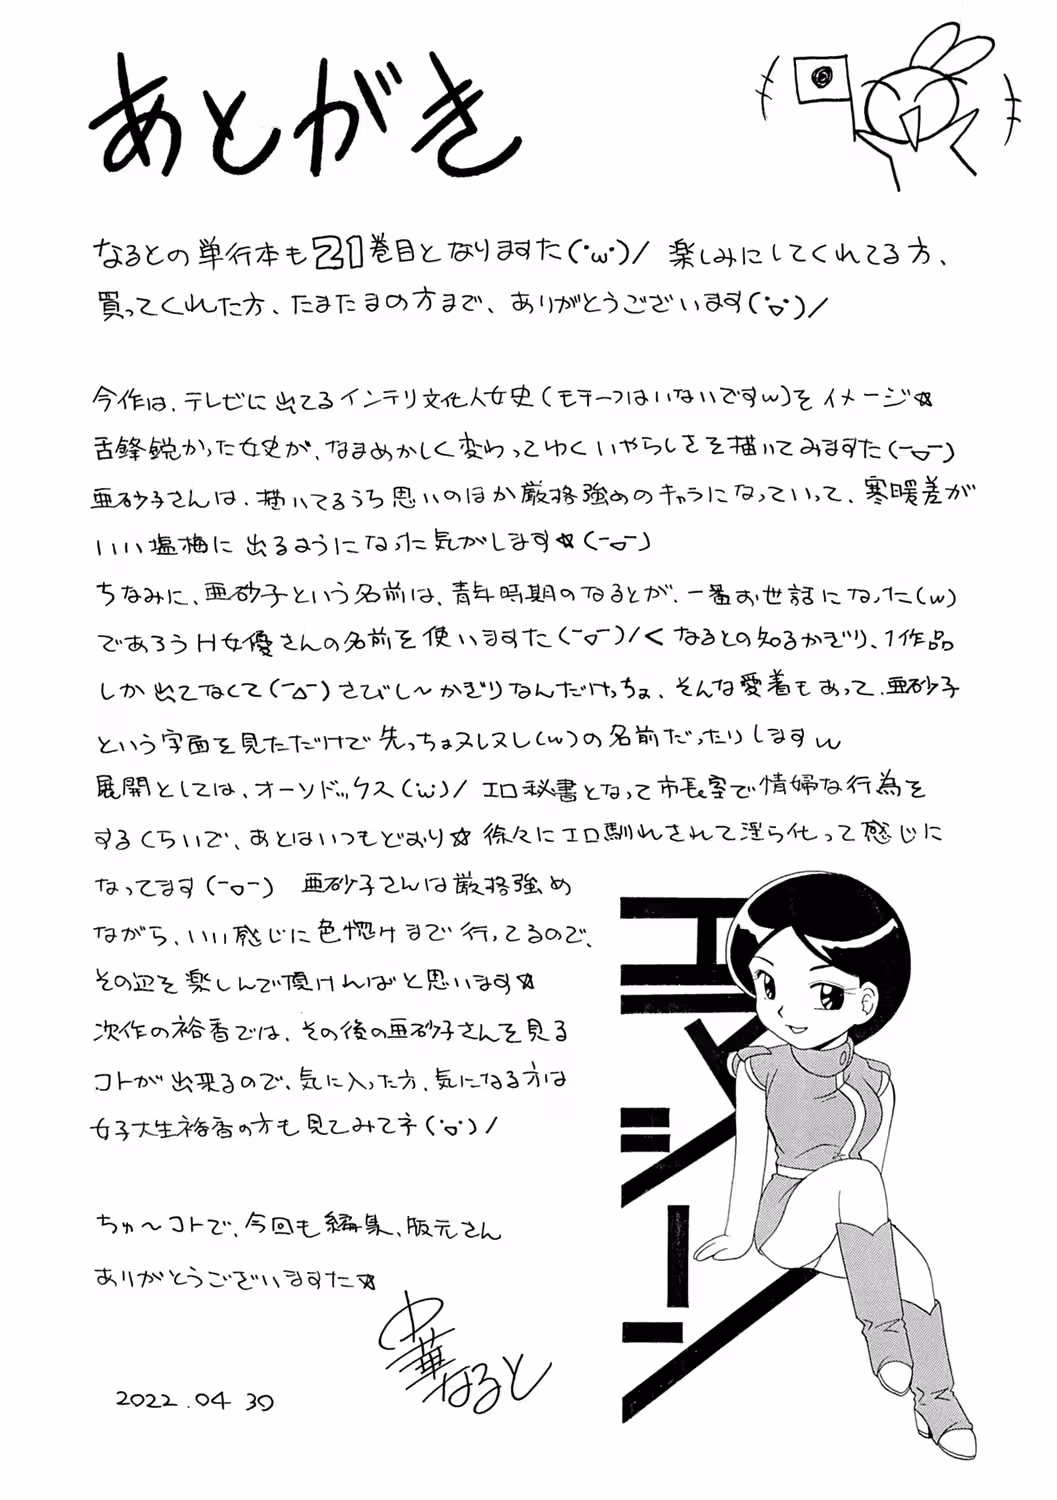 あとがき
なるとの単行本も21巻目となりますた(・ω・)/ 楽しみにしてくれてる方、
買ってくれた方、たまたまの方まで、ありがとうございます(・o・)/
今作は、テレビに出てるインテリ文化人女史(モチーフはいないですw)をイメージ☆
舌鋒鋭かった女史が、なまめかしく変わってゆくいやらしさを描いてみますた(ーoー)
亜砂子さんは、描いてるうち思いのほか厳格強めのキャラになっていって、寒暖差が
いい塩梅に出るようになった気がします☆(ーoー)
ちなみに、亜砂子という名前は、青年時期のなるとが、一番お世話になった(w)
であろうH女優さんの名前を使いますた(ーoー)/くなるとの知るかぎり、1作品
しか出てなくて(ー△ー)さびし〜かぎりなんだけっちょ、そんな愛着もあって、亜砂子
という字面を見ただけで先っちょヌレヌレ(w)の名前だったりしますw
展開としては、オーソドックス(・ω・)/ エロ秘書となって市長室で情婦な行為を
するくらいで、あとはいつもどおり☆ 徐々にエロ馴れされて淫ら化って感じに
なってます(ーoー) 亜砂子さんは厳格強め
ながら、いい感じに色惚けまで行ってるので、
その辺を楽しんで頂ければと思います☆
次作の裕香では、その後の亜砂子さんを見る
コトが出来るので、気に入った方、気になる方は
女子大生裕香の方も見てみてネ(・o・)/
ちゅ〜コトで、今回も編集、版元さん
ありがとうございますた☆
中華なると
2022.04 30
エマージーン